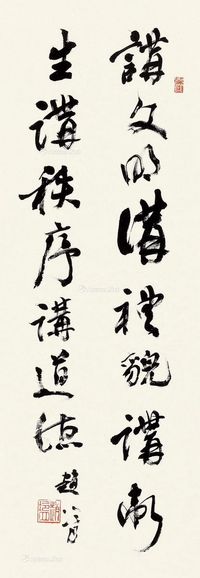 講文明講禮貌講衛
生講秩序講道德
趙冷月